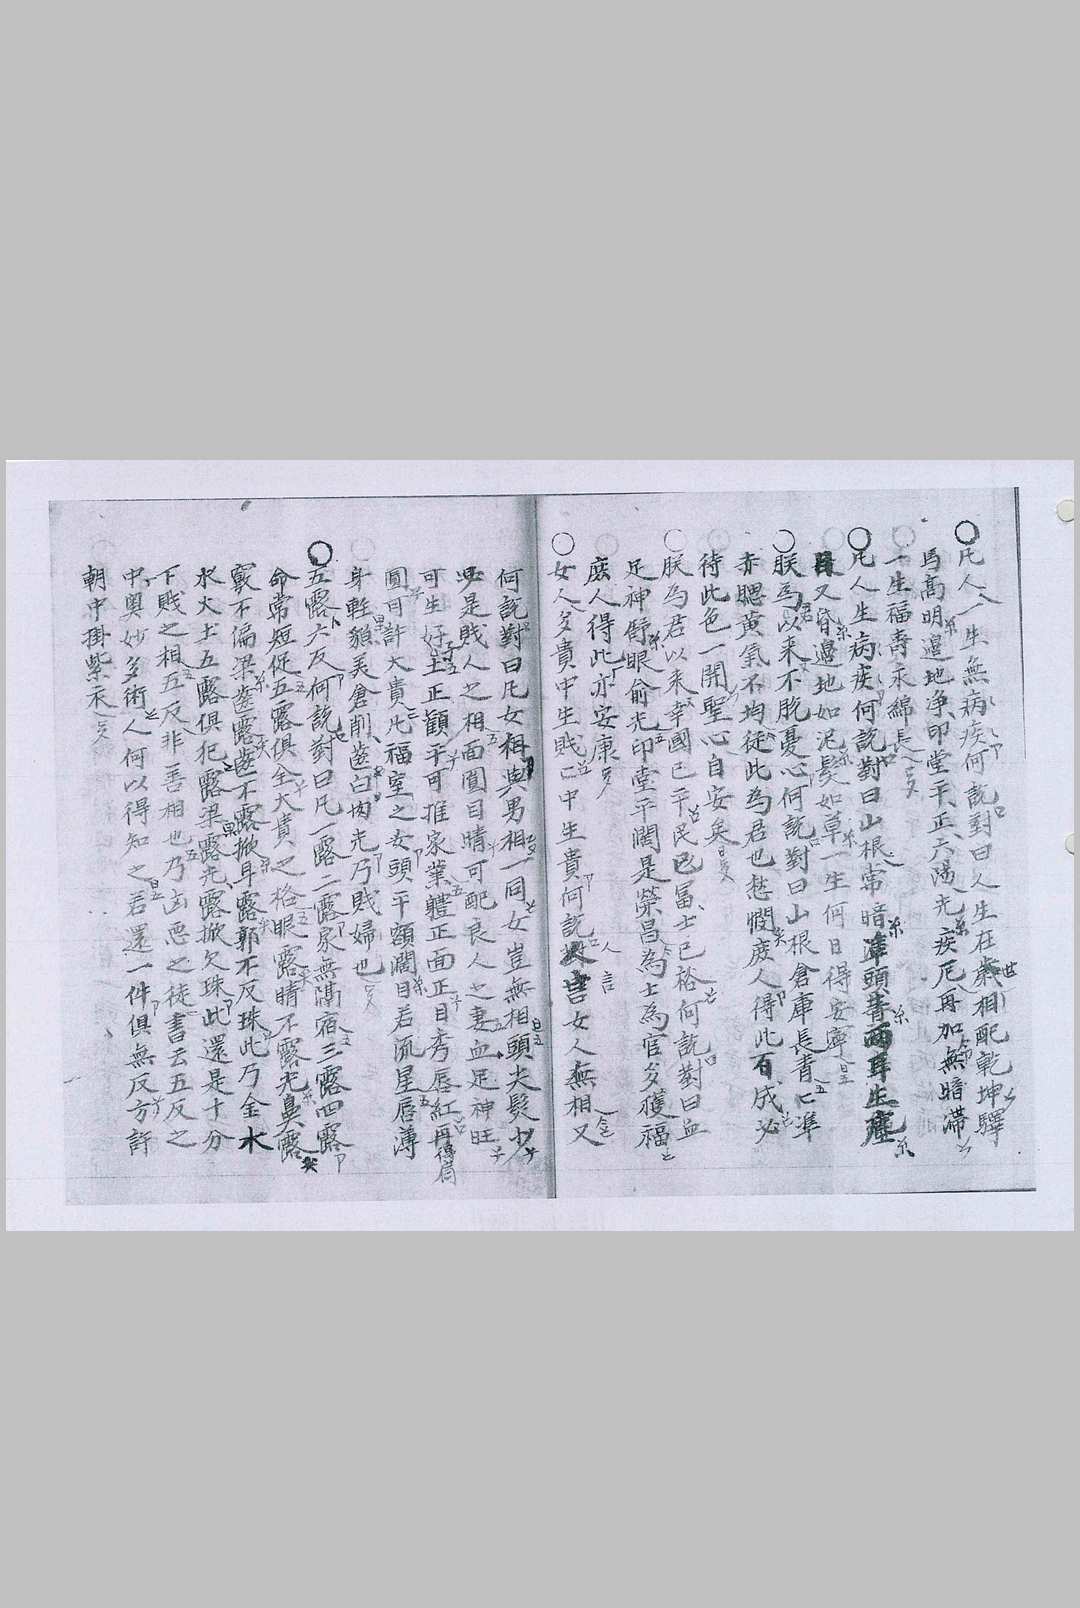 凡人一生無病疾何說對曰人生在歲相配乾坤驛
馬高明邊地净印堂平正六陽光疾厄再加無暗滯
一生福壽永綿長
凡人生病疾何說對曰山根常暗準頭靑兩耳生塵
又昏邉地如泥髮如草一生何日得安寧
朕爲君以来不脫憂心何說對曰山根倉庫長青準
赤腮黄氣不均徒此為君也愁憫庶人得此百成必
待此色一開聖心自安矣
朕為君以来幸國已平民已冨士已裕何說對曰血
足神舒眼俞光印堂平濶是榮昌為士為官多穫福
庶人得此亦安康
女人多貴中生賎賎中生貴何說女人無相又
何說對曰凡女相與男相一同女豈無相頭尖髮少
是賎人之相面圓目睛可配良人之妻血足神旺
可生好子土正顴平可推家業體正面正目秀唇紅再得肩
圓可許大貴凡福室之女頭平額濶目若流星唇薄
身軽貌美倉削齒白肉光乃賎婦也
五露六反何說對曰凡一露二露家無隔宿三露四露
命常短促五露俱全大貴之格眼露睛不露光鼻露
竅不偏梁齒露齒不露掀耳露郭不反珠此乃金水
木火土五露俱犯露梁露光露掀欠珠此還是十分
下賎之相五反非善相也乃凶悪之徒書云五反之
中奥妙多術人何以得知之若還一件俱無反方許
朝中掛紫衣